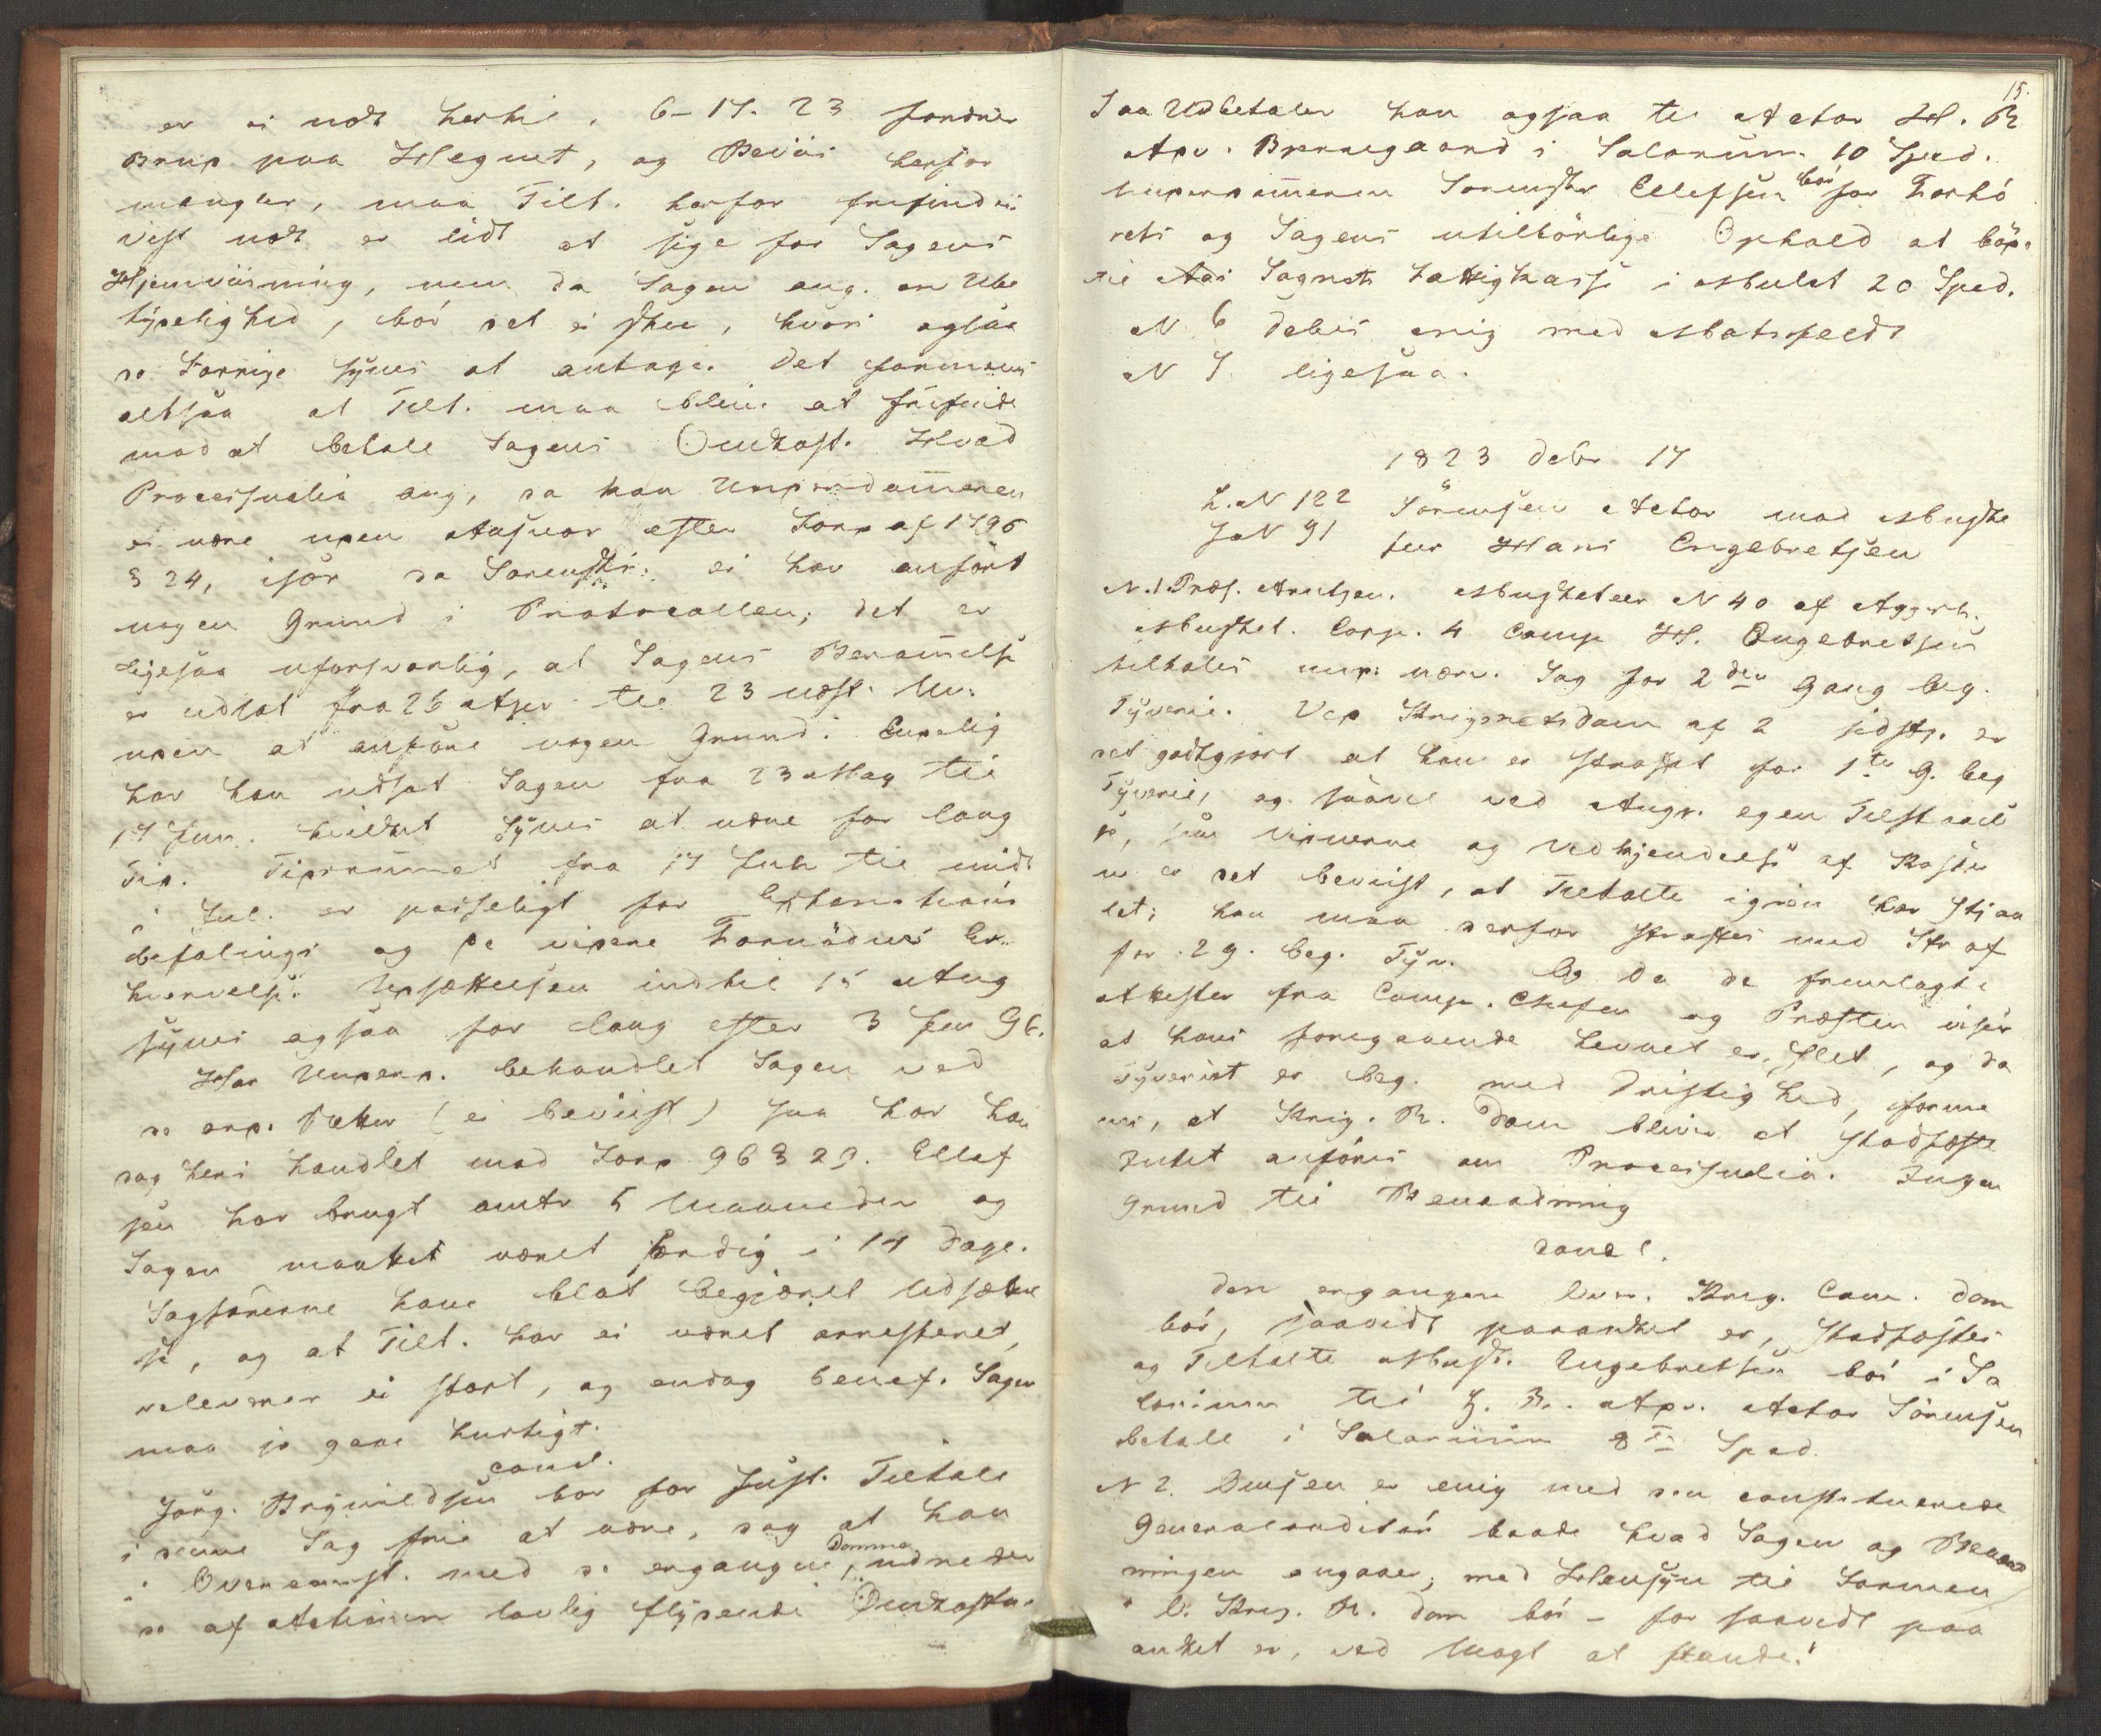 er ei nødt hertil. 6-17. 23 fordrer
Brud paa Hegnet, og Beviis herfor
mangler, maa Tilt. herfor frifindes
Vist nok er lidt at sige for Sagens
Hjemviisning, men da Sagen ang. en Ube
tydelighed, bör det ei skee, hvori ogsaa
de Forrige synes at antage. Det formenes
altsaa at Tilt. maa blive at frifinde
mod at betale Sagens Omkost. Hvad
Processualia ang, da kan Underdommeren
ei være uden Ansvar efter Ford af 1796
§ 24, især da Sorenskr: ei har anført
nogen Grund i Protocollen; det er
ligesaa uforsvarlig, at Sagens Berammelse
er udsat fra 26 Apr til 23 næst. M:
uden at anføre nogen Grund. Endelig
har han udsat Sagen fra 23 May til
17 Jun. hvilket synes at være for lang
Tid. Tidsrummet fra 17 Juni til midt
i Jul. er passeligt for
befalings og de videre Fornödnes Er-
hvervelse. Udsættelsen indtil 15 Aug
synes ogsaa for lang efter 3 Jun 96.
Har Underd. behandlet Sagen ved
de ord. Retter (ei beviist) saa har han
dog heri handlet mod Ford 96 § 29. Ellef
sen har brugt omtr 5 Maaneder og
Sagen maattet været færdig i 14 Dage.
Sagförerne have blot begjæret Udsættel
se, og at Tilt. har ei været arresteret,
releverer ei stort, og endog benef. Sager
maa jo gaae hurtigt.
concl.
Jörg. Brynildsen bör for Just. Tiltale
i denne Sag frie at være, dog at han
i Overeenst. med de ergangne Domme, udreder
de af Actionen lovlig flydende Omkostn.
15.
Saa Udbetaler han ogsaa til Actor H. R
Adv. Bredegaard i Salarium 10 Spd.
Underdommeren Sorenskr Ellefsen bör for Forhö
rets og Sagens utilbörlige Ophold at böde
til Aas Sognets Fattigkasse i Mulct 20 Spd.
N. 6 Debes enig med Motzfeldt
N 7 ligesaa.
1823 Debr 17
L. N 122 Sörensen Actor mod Muske
J N 91 teer Hans Engebretsen
N. 1. Præs. Arntzen. Musketeer N 40 af Aggersh.
Musket. Corps. 4 Comp H. Engebretsen
tiltales und. nærv. Sag for 2den Gang beg.
Tyverie. Ved Krigsretsdom af 2 sidstl. er
det godtgjort at han er straffet for 1te G. beg
Tyverie, og saavel ved Angr. egen Tilstaael
se, som Vidnerne og Vedkjendelse af Koster
ne er det beviist, at Tiltalte igien har stjaa
let; han maa derfor straffes med Str af
for 2 G. beg. Tyv. Og da de fremlagte
Attester fra Comp. Chefen og Præsten viser
at hans foregaaende Levnet er slet, og da
Tyveriet er beg. med Dristighed, forme
nes, at Krig. R. Dom bliver at stadfæste
Intet anföres om Processualia. Ingen
Grund til Benaadning
concl.
Den ergangne Over. Krig. Com. Dom
bör, saavidt paaanket er, stadfæstes
og Tiltalte Musk. Engebretsen bör i Sa
larium til H. R. Adv. Actor Sörensen
betale i Salarium 8te Spd.
N 2. Omsen er enig med den constituerede
Generalauditör baade hvad Sagen og Benaad
ningen angaaer, med Hensyn til Formen
O. Krigs. R. Dom bör - for saavidt paa
anket er, ved Magt at stande.